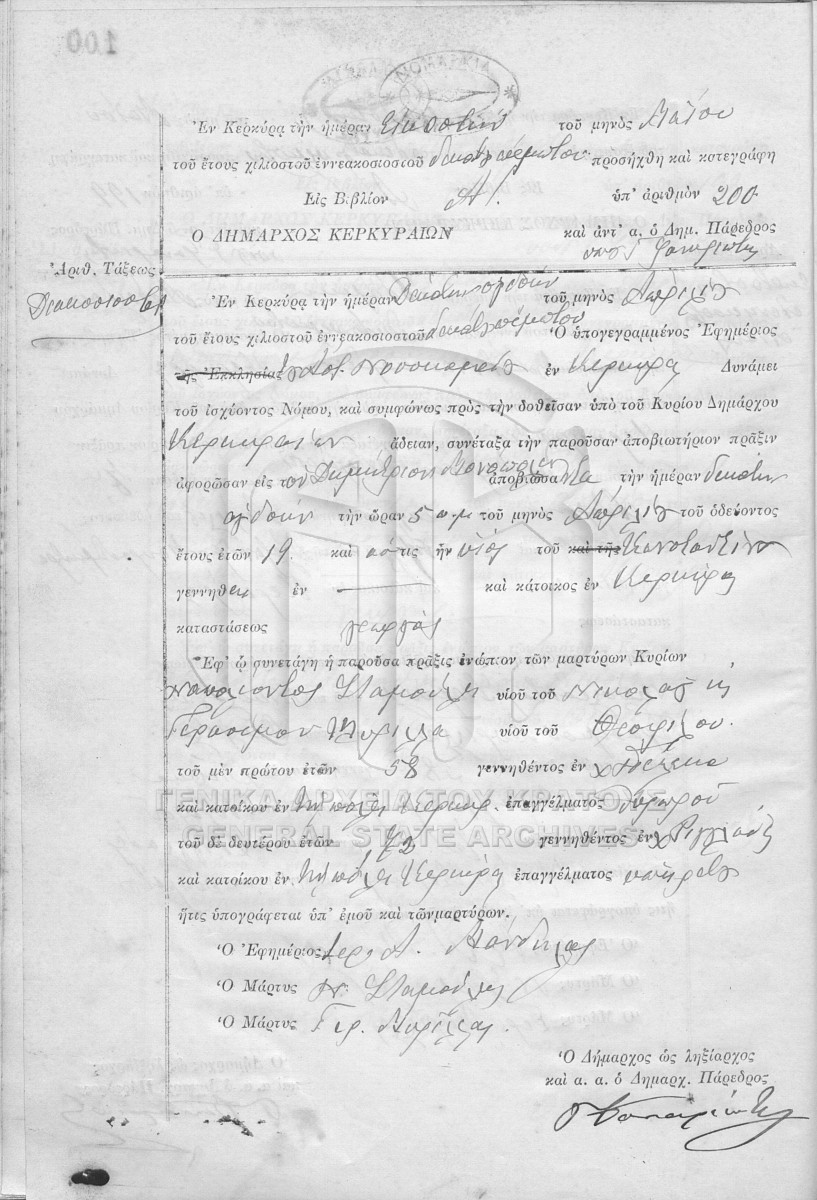 100
Ἐν Κερκύρᾳ τὴν ἡμέραν Εἰκοστὴν τοῦ μηνὸς Μαΐου
τοῦ ἔτους χιλιοστοῦ ἐννεακοσιοστοῦ δεκάτου πέμπτου προσήχθη καὶ κατεγράφη
Εἰς Βιβλίον Α!. ὑπ' ἀριθμὸν 200
Ο ΔΗΜΑΡΧΟΣ ΚΕΡΚΥΡΑΙΩΝ καὶ ἀντ' α. ὁ Δημ. Πάρεδρος
Ἀριθ. Τάξεως
Ἐν Κερκύρᾳ τὴν ἡμέραν Δεκάτην ὀγδόην τοῦ μηνὸς Ἀπριλίου
τοῦ ἔτους χιλιοστοῦ ἐννεακοσιοστοῦ δεκάτου πέμπτου Ὁ ὑπογεγραμμένος Ἐφημέριος
τῆς Ἐκκλησίας Νοσοκομείου ἐν Κερκύρᾳ Δυνάμει
τοῦ ἰσχύοντος Νόμου, καὶ συμφώνως πρὸς τὴν δοθεῖσαν ὑπὸ τοῦ Κυρίου Δημάρχου
Κερκυραίων ἄδειαν, συνέταξα τὴν παροῦσαν ἀποβιωτήριον πρᾶξιν
ἀφορῶσαν εἰς τὸν Δημήτριον ἀποβιώσαντα τὴν ἡμέραν δεκάτην
ὀγδόην τὴν ὥραν 5 π.μ. τοῦ μηνὸς Ἀπριλίου τοῦ ὁδεύοντος
ἔτους ἐτῶν 19 καὶ ὅστις ἦν υἱὸς τοῦ καὶ τῆς Κωνσταντίνου
γεννηθεὶς ἐν — καὶ κάτοικος ἐν Κερκύρᾳ
καταστάσεως γεωργὸς
Ἐφ' ᾧ συνετάγη ἡ παροῦσα πρᾶξις ἐνώπιον τῶν μαρτύρων Κυρίων
Ναπολέοντος Σταμούλη υἱοῦ τοῦ Νικολάου καὶ
Γερασίμου υἱοῦ τοῦ Θεοφίλου.
τοῦ μὲν πρώτου ἐτῶν 58 γεννηθέντος ἐν
καὶ κατοίκου ἐν τῇ πόλει Κερκύρ. ἐπαγγέλματος θυρωροῦ
τοῦ δὲ δευτέρου ἐτῶν 42 γεννηθέντος ἐν
καὶ κατοίκου ἐν τῇ πόλει Κερκύρᾳ ἐπαγγέλματος ὑπηρέτου
ἥτις ὑπογράφεται ὑπ' ἐμοῦ καὶ τῶν μαρτύρων.
Ὁ Ἐφημέριος
Ὁ Μάρτυς Ν. Σταμούλης
Ὁ Μάρτυς Γερ.
Ὁ Δήμαρχος ὡς ληξίαρχος
καὶ α. α. ὁ Δημαρχ. Πάρεδρος
ΓΕΝΙΚΑ ΑΡΧΕΙΑ ΤΟΥ ΚΡΑΤΟΥΣ
GENERAL STATE ARCHIVES